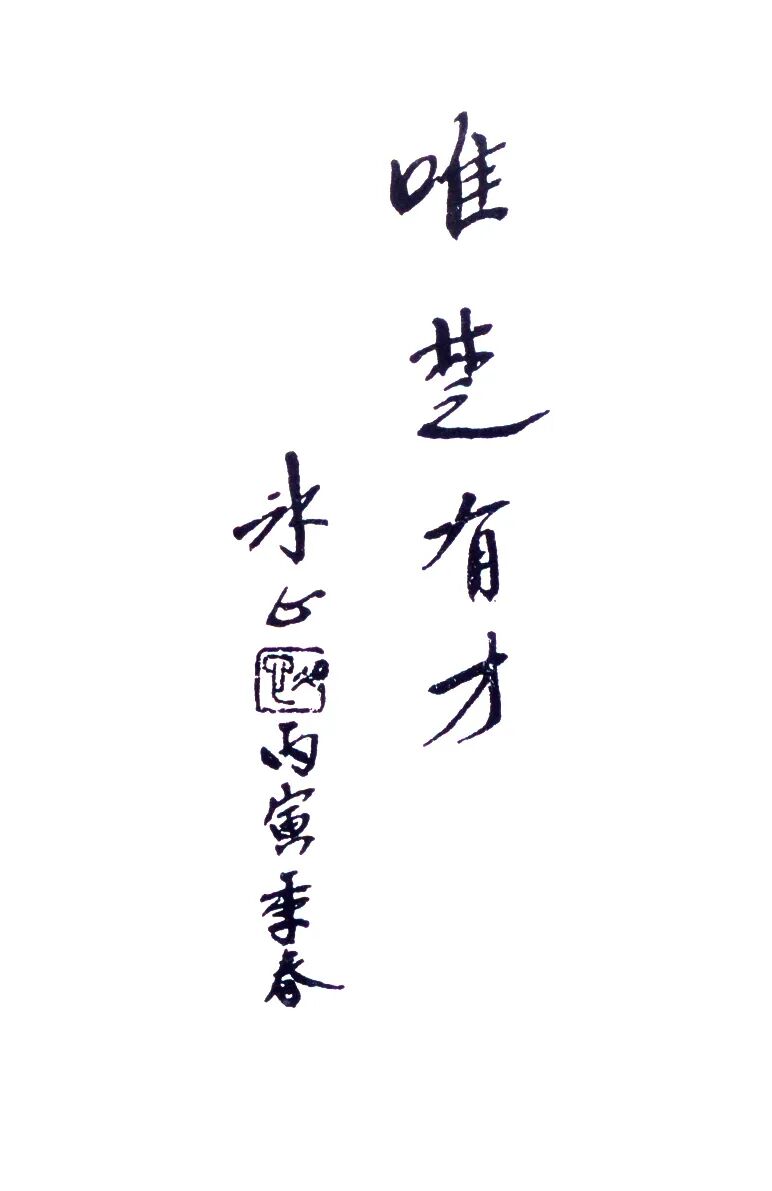 唯楚有才
冰心
丙寅季春